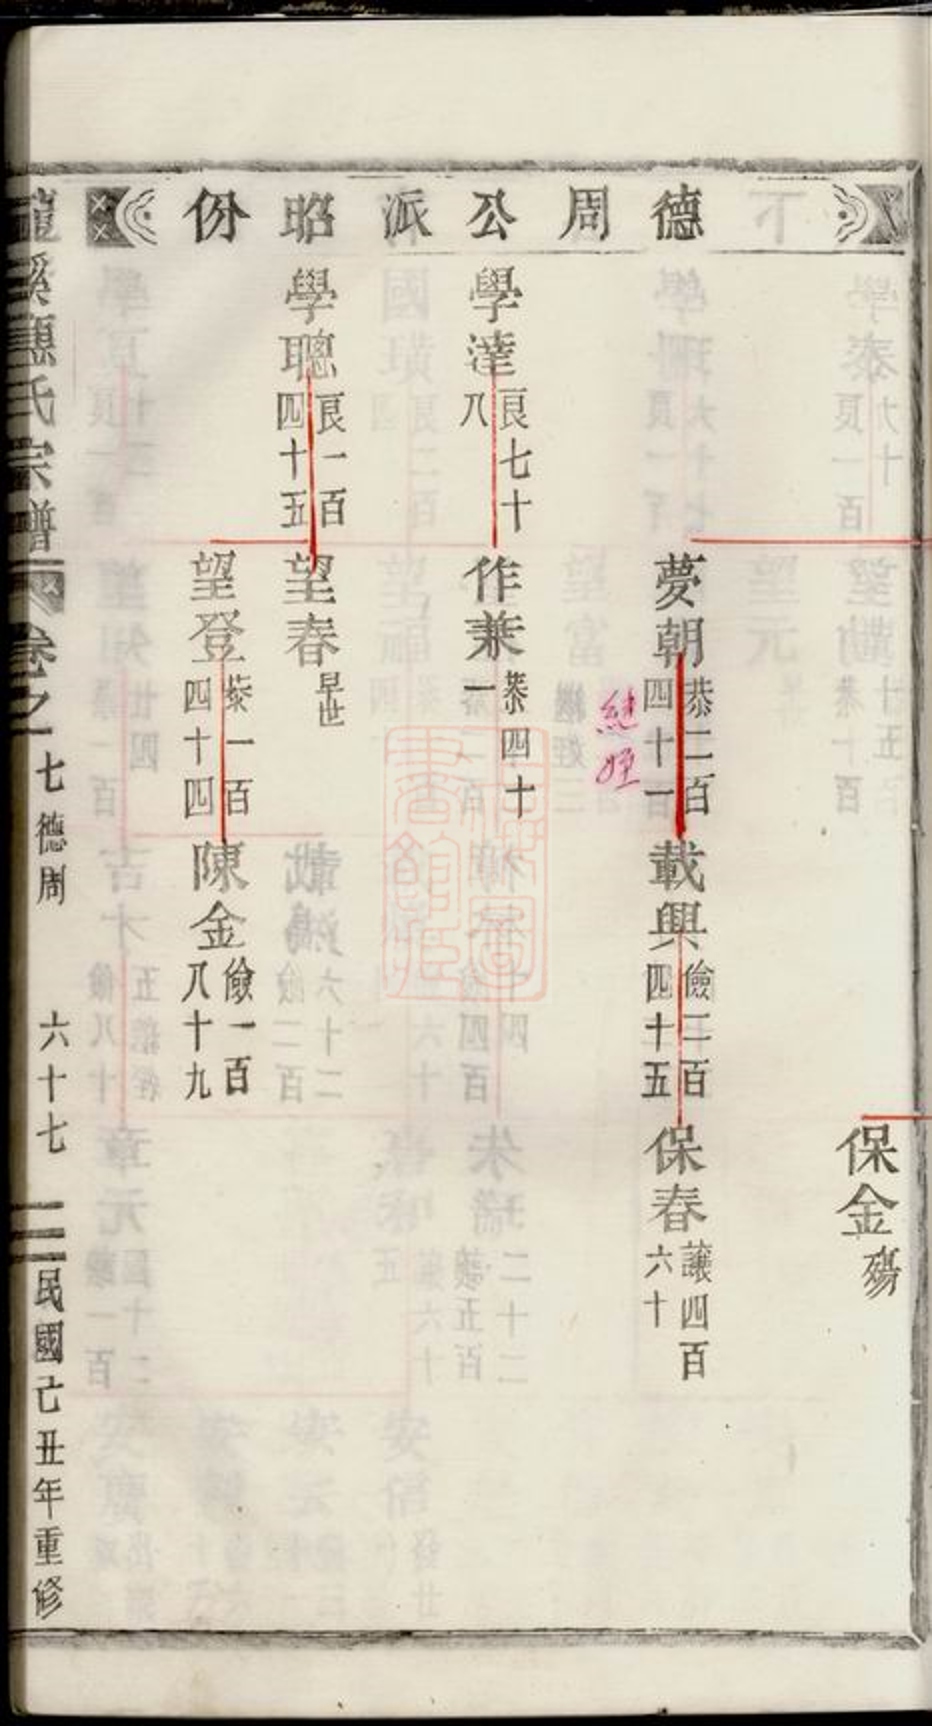 德周公派昭份
保金殤
夢朝恭二百四十一
繼姪
載興儉三百四十五
保春讓四百六十
學達良七十八
作兼恭四十一
學聰良一百四十五
望春早世
望登恭一百四十四
陳金儉一百八十九
溪惠氏宗譜
卷之一
七德周
六十七
民國己丑年重修